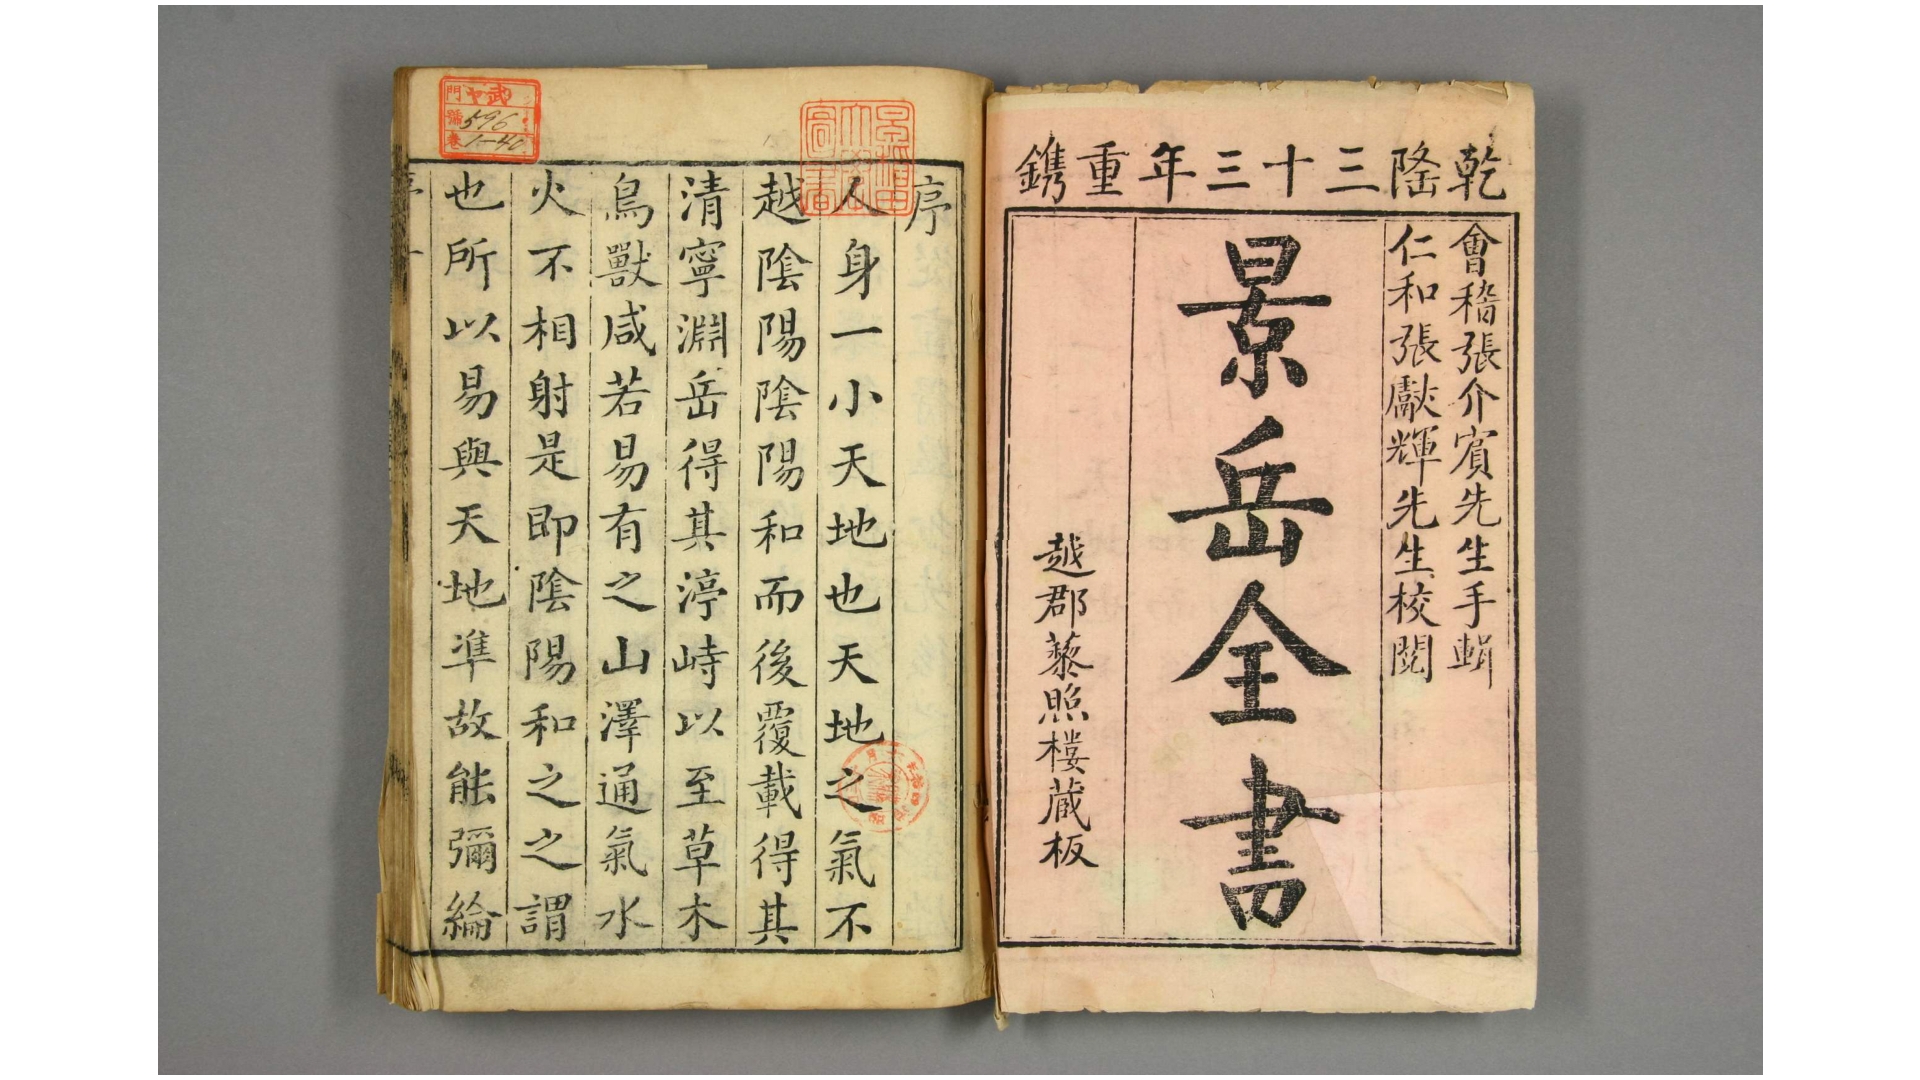 乾隆三十三年重鐫
會稽張介賓先生手輯
仁和張獻輝先生校閱
景岳全書
越郡藜照樓蔵板
序
人身一小天地也天地之氣不
越陰陽陰陽和而後覆載得其
清寧淵岳得其渟峙以至草木
鳥獸咸若易有之山澤通氣水
火不相射是即陰陽和之之謂
也所以易與天地凖故能彌綸
門
號596
卷1-40